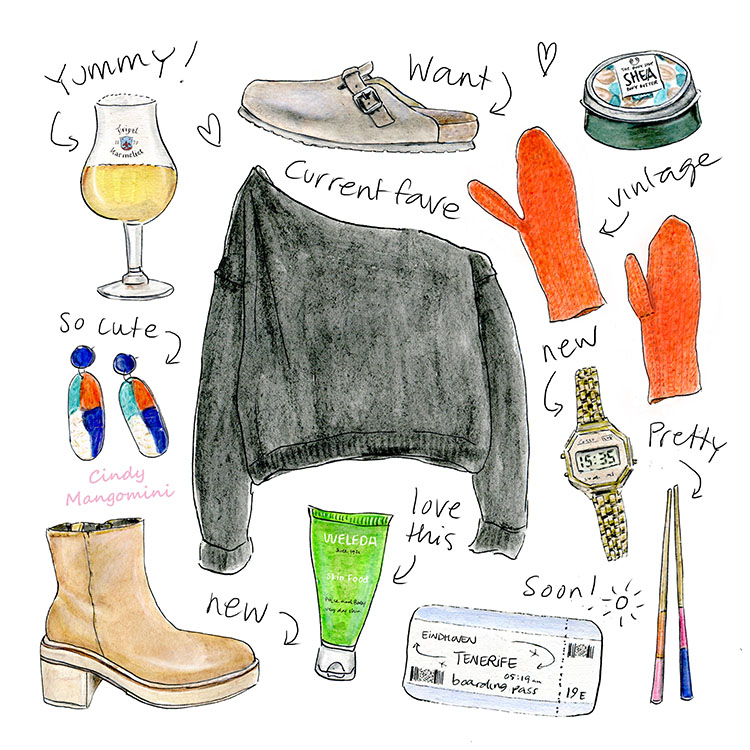 Yummy!
Tripel
Karmeliet
Want
THE BODY SHOP
SHEA
BODY BUTTER
Current fave
vintage
So cute
new
15:35
Pretty
Cindy
Mangomini
love
this
WELEDA
Since 1921
Skin Food
new
Soon!
EINDHOVEN
TENERIFE
05:19am
boarding pass
19E